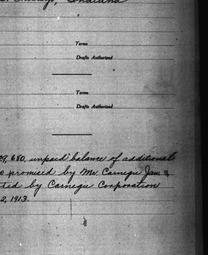 Indiana
Terms
Drafts Authorized
Terms
Drafts Authorized
680, unpaid balance of additional
promised by Mr. Carnegie Jan 9
by Carnegie Corporation
2, 1913.